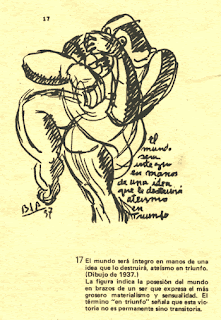 17
el
mundo
sera
integro
en manos
de una idea
que lo destruirá
ateismo
en
triunfo
BSP
37
17 El mundo será íntegro en manos de una
idea que lo destruirá, ateísmo en triunfo.
(Dibujo de 1937.)
La figura indica la posesión del mundo
en brazos de un ser que expresa el más
grosero materialismo y sensualidad. El
término "en triunfo" señala que esta vic-
toria no es permanente sino transitoria.